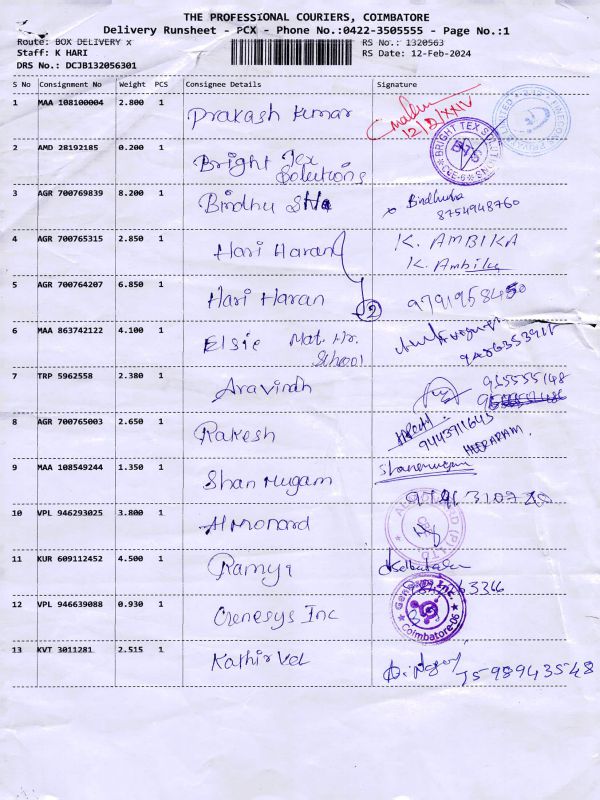 THE PROFESSIONAL COURIERS, COIMBATORE
Delivery Runsheet - PCX - Phone No.:0422-3505555 - Page No.:1
Route: BOX DELIVERY x RS No.: 1320563
Staff: K HARI RS Date: 12-Feb-2024
DRS No.: DCJB132056301
S No Consignment No Weight PCS Consignee Details Signature
1 MAA 108100004 2.800 1 Prakash Kumar
12/2/XXIV
2 AMD 28192185 0.200 1 Bright Tex Solutions BRIGHT TEX SOLUTIONS
CBE-6
3 AGR 700769839 8.200 1 Bindhu Bindhuha
8754948760
4 AGR 700765315 2.850 1 Hari Haran K. AMBIKA
K. Ambika
5 AGR 700764207 6.850 1 Hari Haran 2
6 MAA 863742122 4.100 1 Elsie Mat. Hr. School
7 TRP 5962558 2.380 1 Aravindh 915555148
8 AGR 700765003 2.650 1 Rakesh 9443711645
HEERARAM.
9 MAA 108549244 1.350 1 Shan Mugam Shanmugam
10 VPL 946293025 3.800 1
11 KUR 609112452 4.500 1 Ramya
12 VPL 946639088 0.930 1 Genesys Inc Genesys Inc.
Coimbatore-06
13 KVT 3011281 2.515 1 Kathir Vel 7598943548